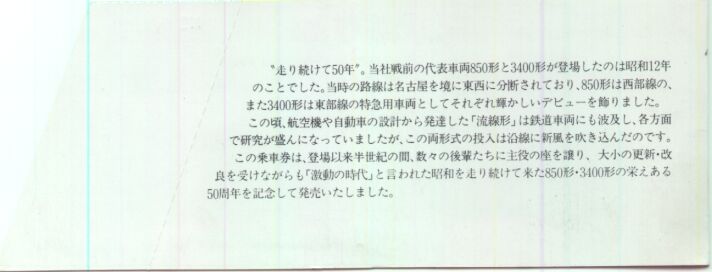 〝走り続けて50年〟。当社戦前の代表車両850形と3400形が登場したのは昭和12年
のことでした。当時の路線は名古屋を境に東西に分断されており、850形は西部線の、
また3400形は東部線の特急用車両としてそれぞれ輝かしいデビューを飾りました。
この頃、航空機や自動車の設計から発達した「流線形」は鉄道車両にも波及し、各方面
で研究が盛んになっていましたが、この両形式の投入は沿線に新風を吹き込んだのです。
この乗車券は、登場以来半世紀の間、数々の後輩たちに主役の座を譲り、大小の更新・改
良を受けながらも「激動の時代」と言われた昭和を走り続けて来た850形・3400形の栄えある
50周年を記念して発売いたしました。